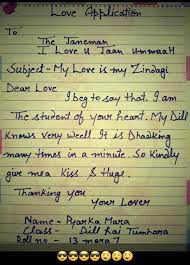 Love Application
To
The Janeman
I Love U Jaan Ummaah
Subject - My Love is my Zindagi
Dear Love
I beg to say that. I am
The student of your heart. My Dill
Knows very well. It is Dhadking
many times in a minute. So Kindly
give me a Kiss & Huge.
Thanking you
Your Lover
Name - Pyar Ka Mara
Class - Dill Kai Tumhara
Roll no - 13 mera 7
😎😎😎😎😉😉😉